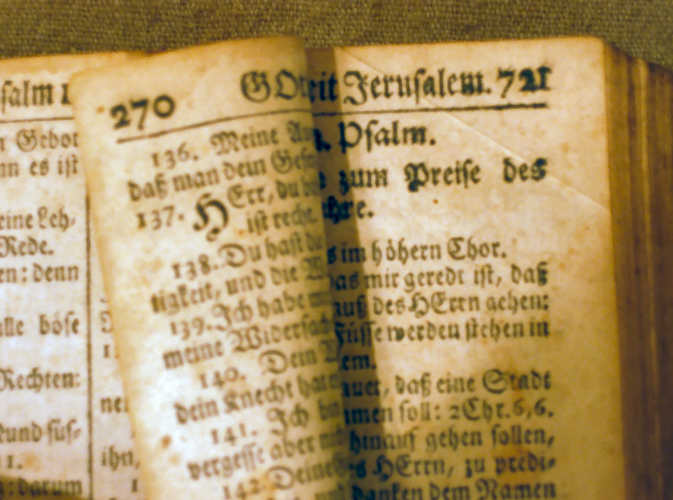 salm 1
Gebot
nn es ist
eine Leh-
Rede.
en: denn
alle böse
Rechten:
und süs-
1.
: darum
ihn,
270 GOt
136. Meine
daß man dein Gese
137. HErr, du bi
ist recht
138. Du hast
tigkeit, und die
139. Ich habe
meine Widersach
140. Dein
dein Knecht hat
141. Ich bin
vergesse aber
142. Deine
eit Jerusalem. 721
Psalm.
zum Preise des
re.
s im höhern Chor.
as mir geredt ist, daß
auß des HErrn gehen:
Füsse werden stehen in
em.
auet, daß eine Stadt
men soll: 2 Chr. 6,6.
hinauf gehen sollen,
s HErrn, zu predi-
danken dem Namen